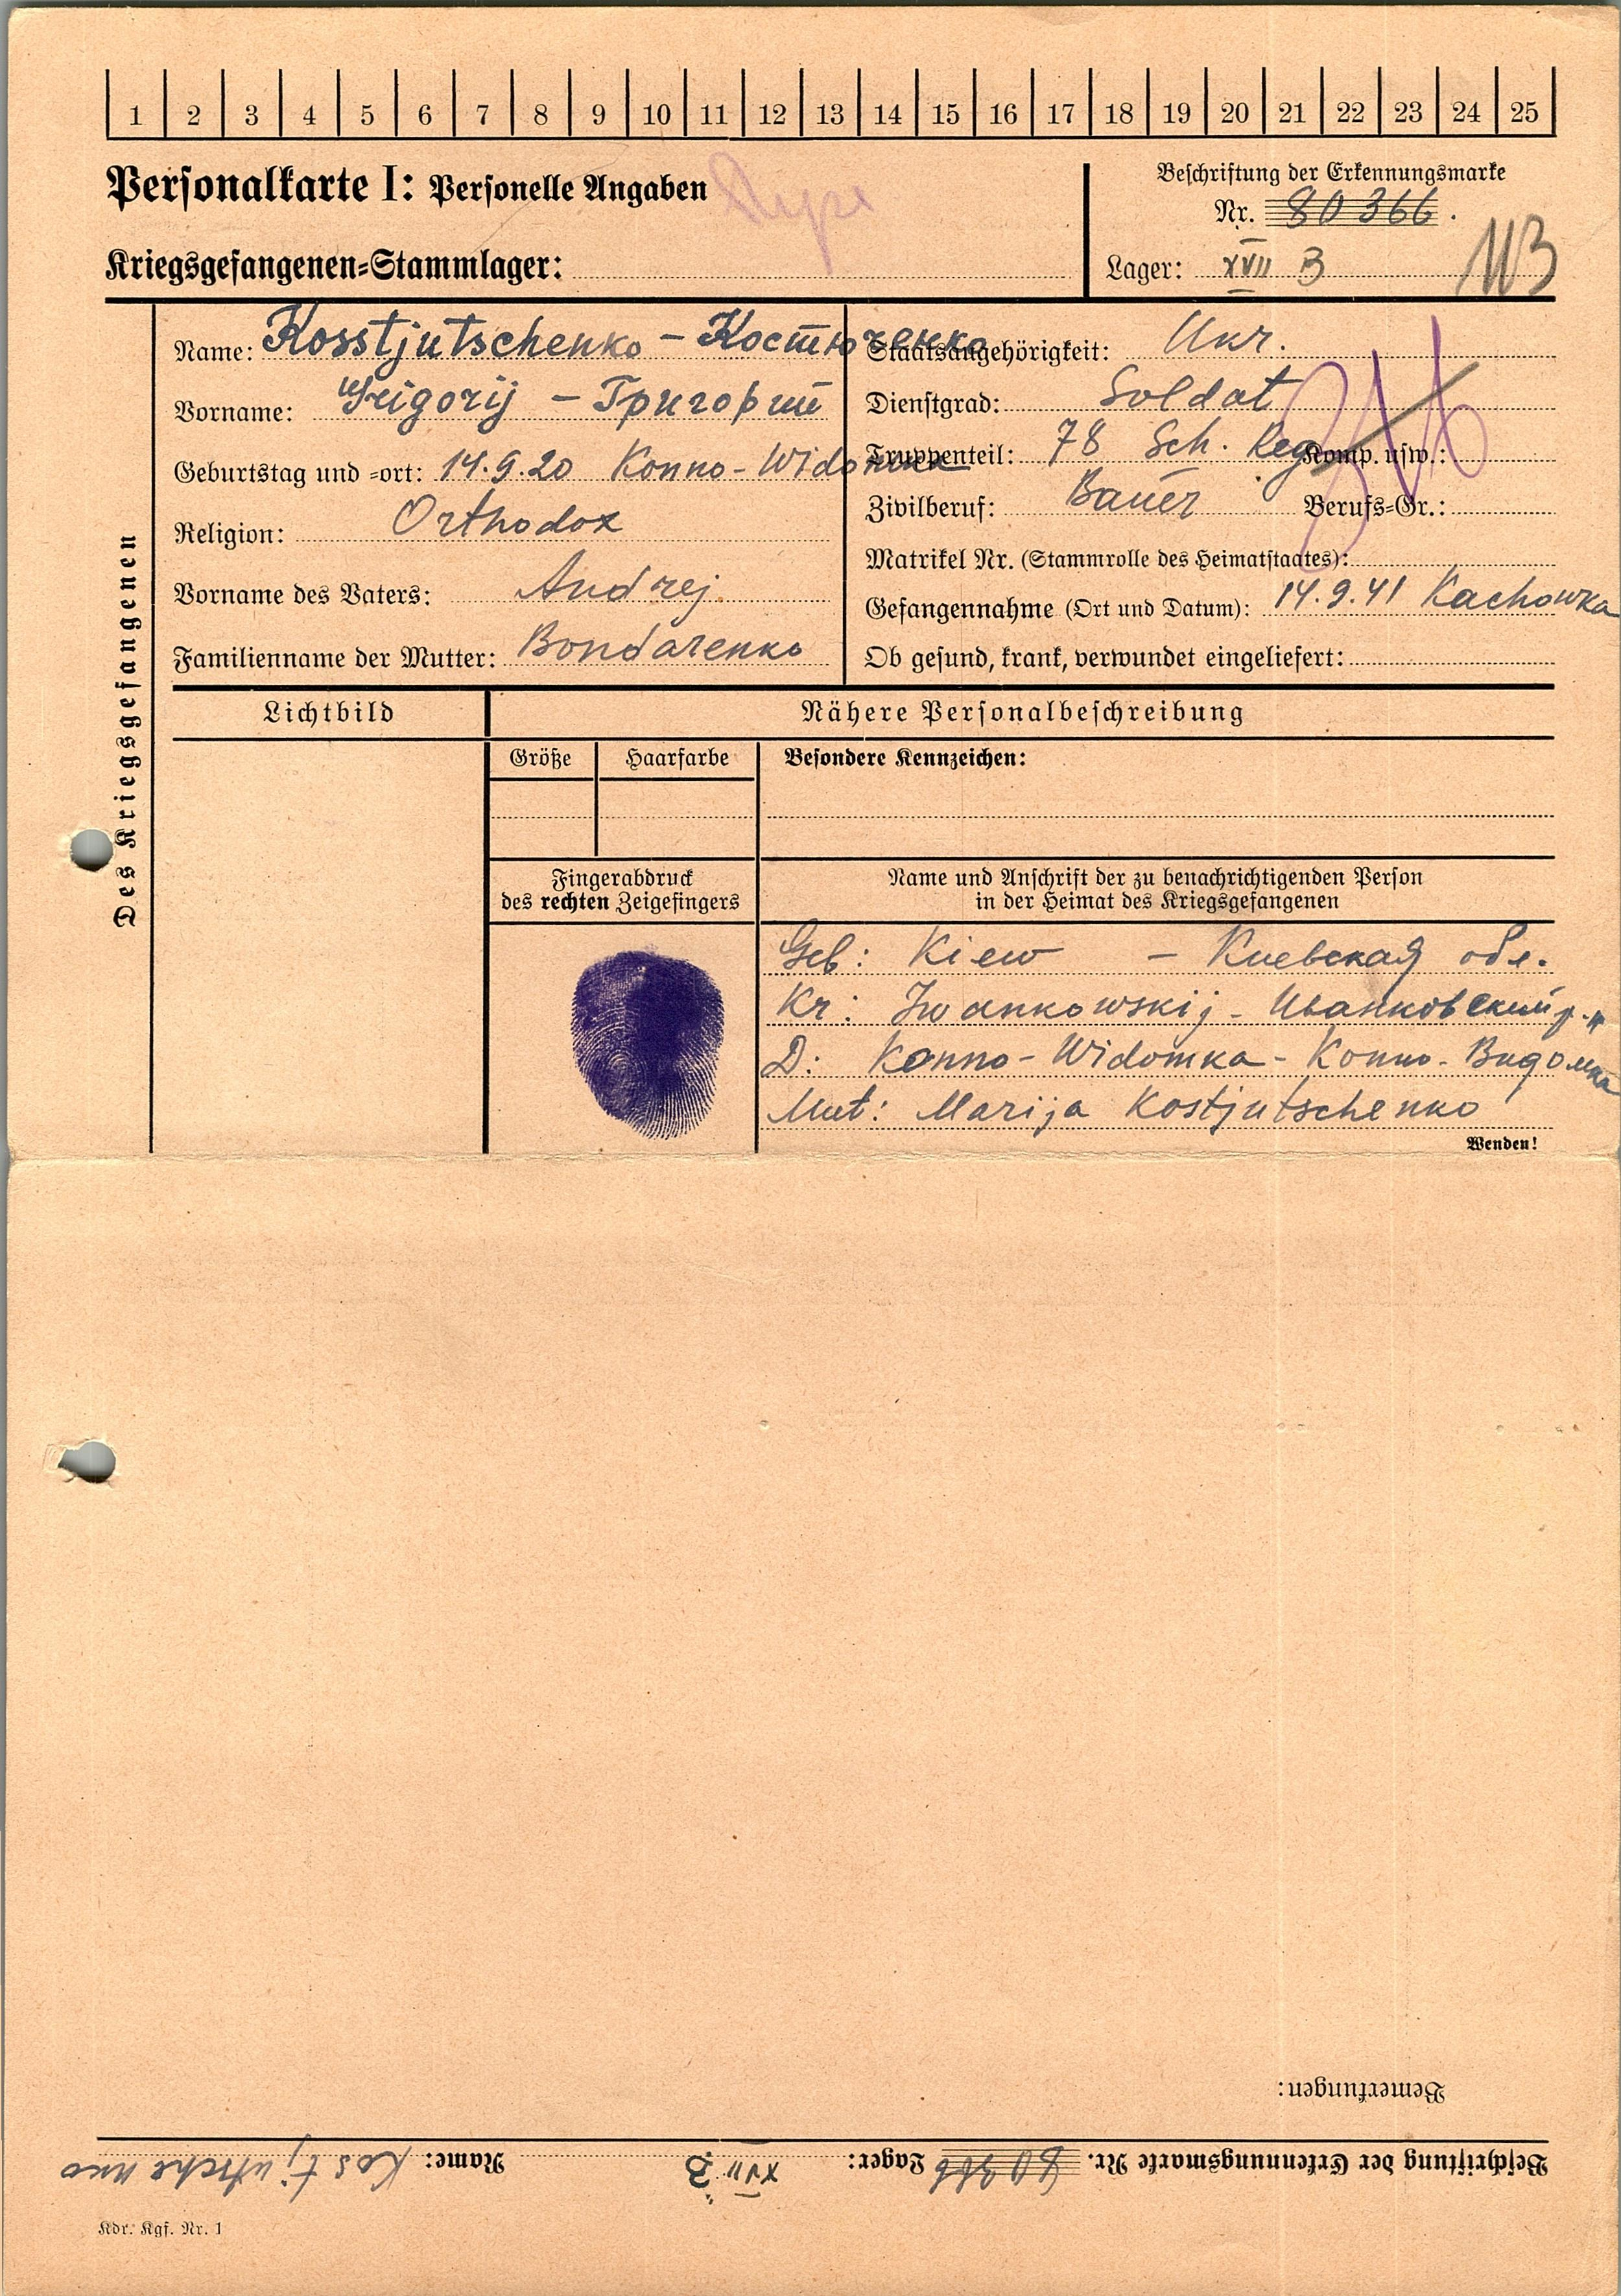 1 2 3 4 5 6 7 8 9 10 11 12 13 14 15 16 17 18 19 20 21 22 23 24 25
Personalkarte I: Personelle Angaben
Kriegsgefangenen=Stammlager:
Beschriftung der Erkennungsmarke
Nr. 80366.
Lager: XVII B
Des Kriegsgefangenen
Name: Kosstjutschenko – Костюченко
Vorname: Grigorij – Григорий
Geburtstag und =ort: 14.9.20 Konno-Widomka
Religion: Orthodox
Vorname des Vaters: Andrej
Familienname der Mutter: Bondarenko
Staatsangehörigkeit: Ukr.
Dienstgrad: Soldat
Truppenteil: 78 Sch. Reg Komp. usw.:
Zivilberuf: Bauer Berufs=Gr.:
Matrikel Nr. (Stammrolle des Heimatstaates):
Gefangennahme (Ort und Datum): 14.9.41 Kachowka
Ob gesund, krank, verwundet eingeliefert:
Lichtbild
Nähere Personalbeschreibung
Größe Haarfarbe Besondere Kennzeichen:
Fingerabdruck
des rechten Zeigefingers
Name und Anschrift der zu benachrichtigenden Person
in der Heimat des Kriegsgefangenen
Geb: Kiew – Киевская обл.
Kr: Iwankowskij - Иванковский р-н
D: Konno-Widomka - Конно-Видомка
Mut: Marija Kostjutschenko
Wenden!
Bemerkungen:
Beschriftung der Erkennungsmarke Nr. 80366 Lager: XVII B Name: Kostjutschenko
Kdr. Kgf. Nr. 1